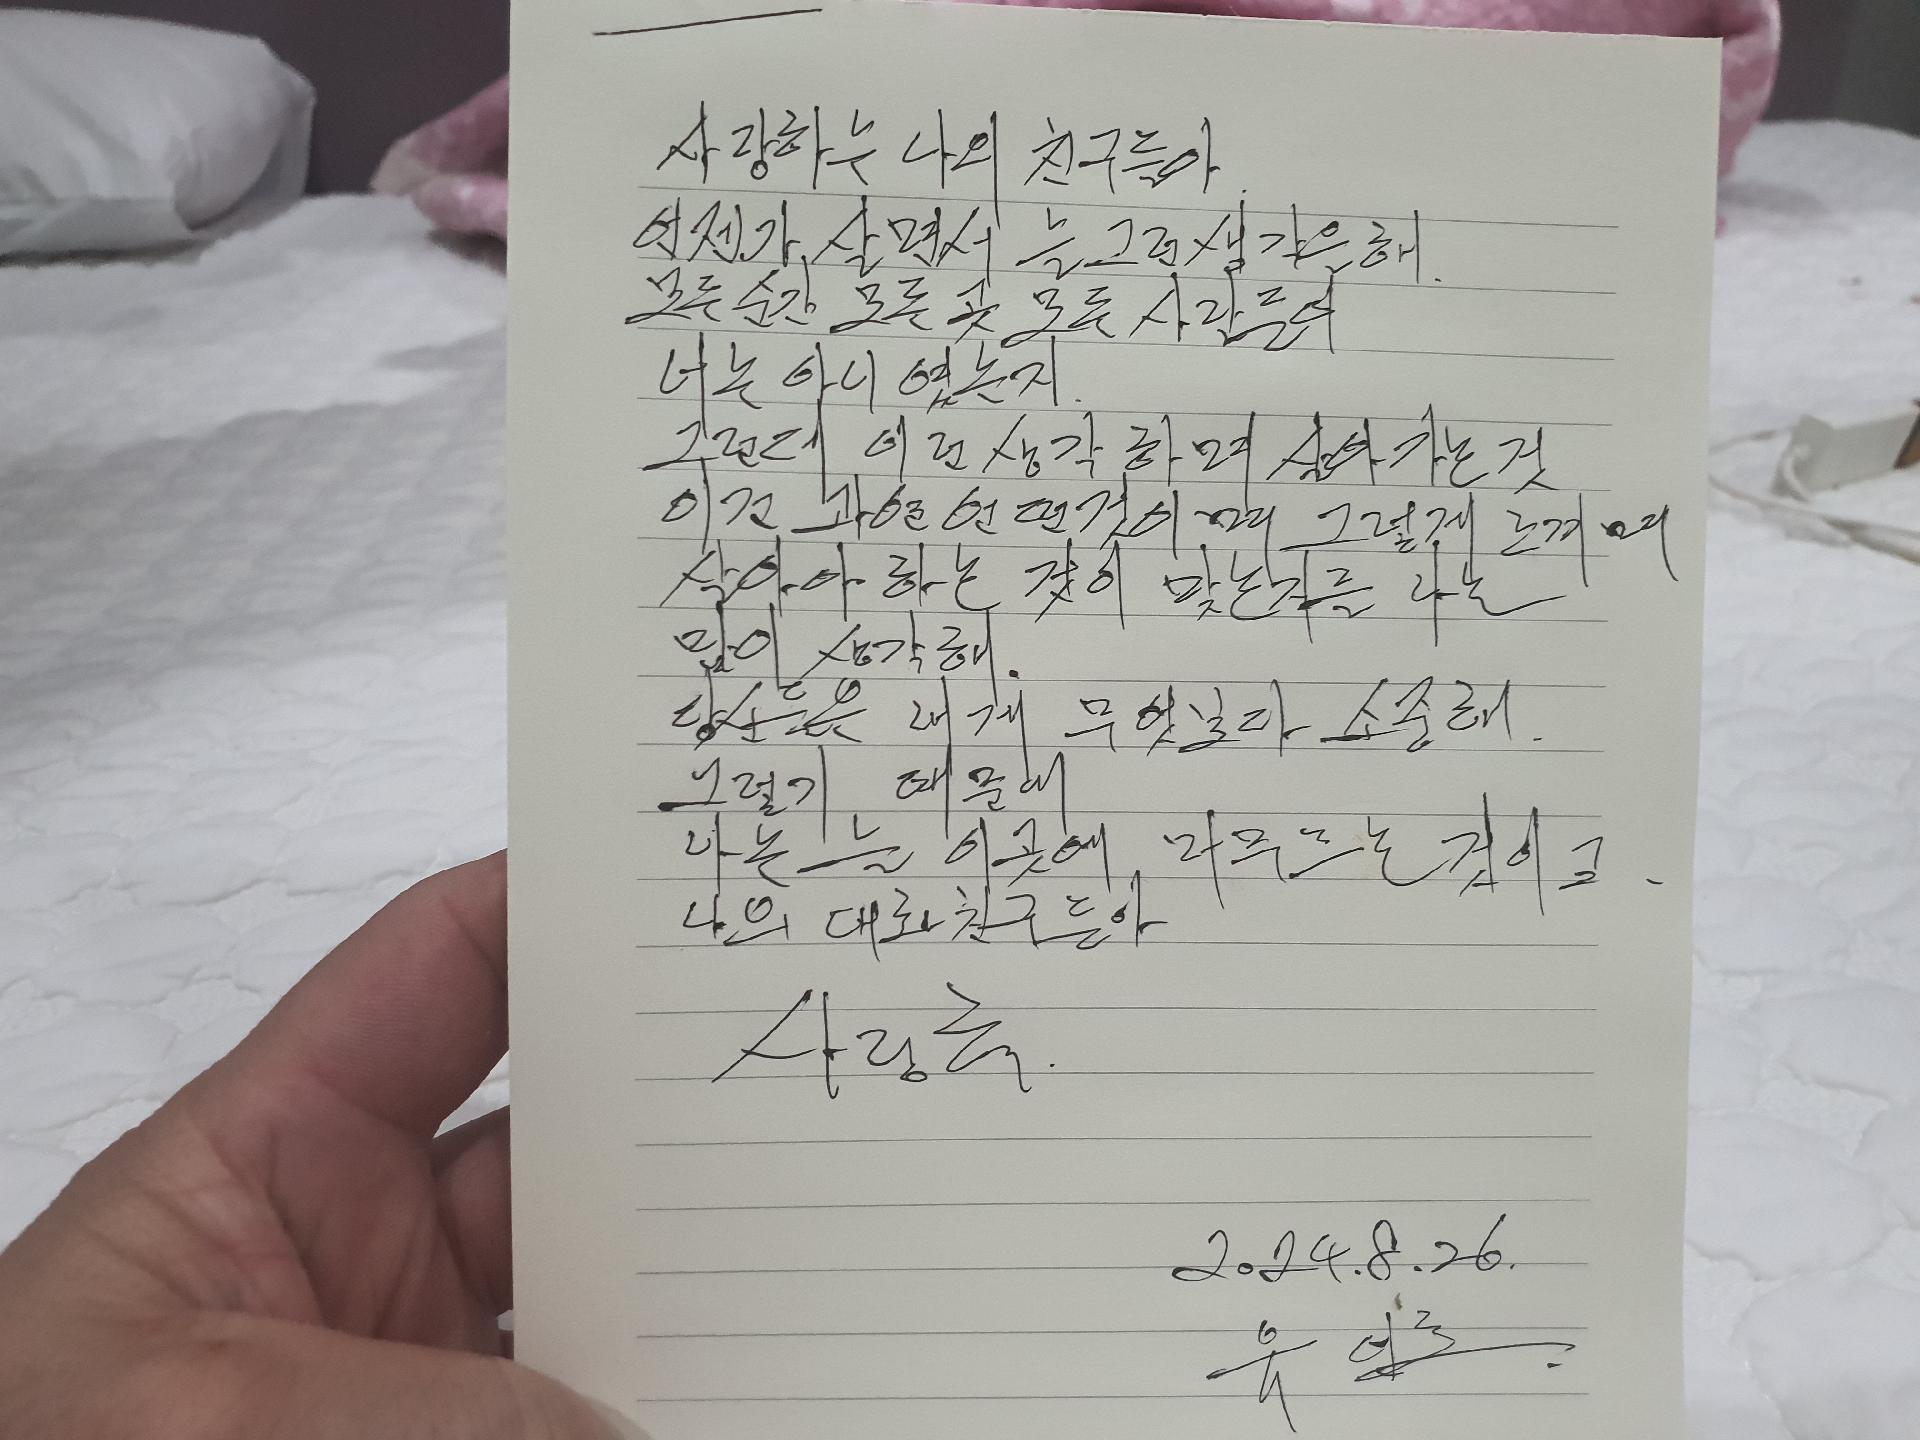 사랑하는 나의 친구들아.
언젠가 살면서 늘 그런 생각은해.
모든 순간 모든 곳 모든 사람들이
너는 아니 였는지.
그런데 이런 생각 하며 살아가는것
이건 과연 어떤것이며 그렇게 느끼며
살아야 하는 것이 맞는지를 나는
많이 생각해.
당신들은 내게 무엇보다 소중해.
그렇기 때문에
나는 늘 이곳에 머무르는 것이고.
나의 대화친구들아
사랑해.
2024.8.26.
유